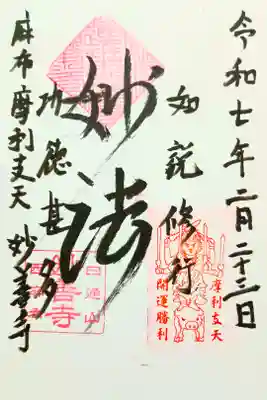 令和七年二月二十三日
如説修行
妙法
功徳甚多
麻布摩利支天 妙善寺
摩利支天
開運勝利
日通山
妙善寺